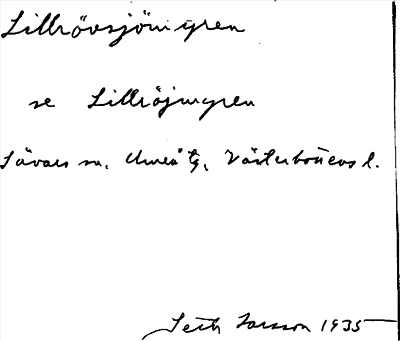 Lillrövsjömyren
se Lillröjmyren
Sävars sn. Umeå tg. Västerbottens l.
Seth Larsson 1935